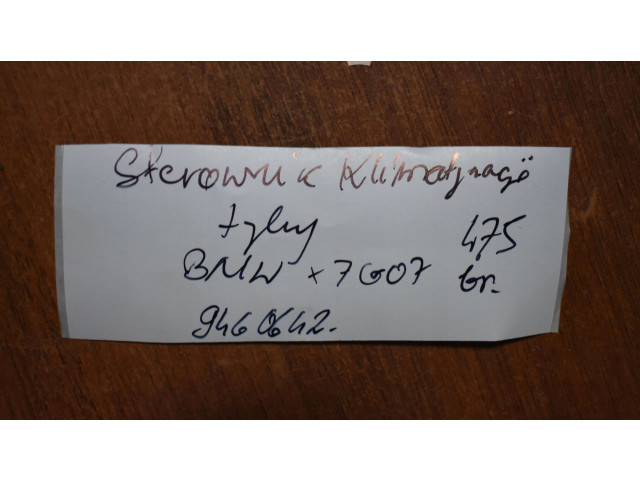 Sterownik Klimatyzacji
tylny 475
BMW x7 G07 br.
9460642.